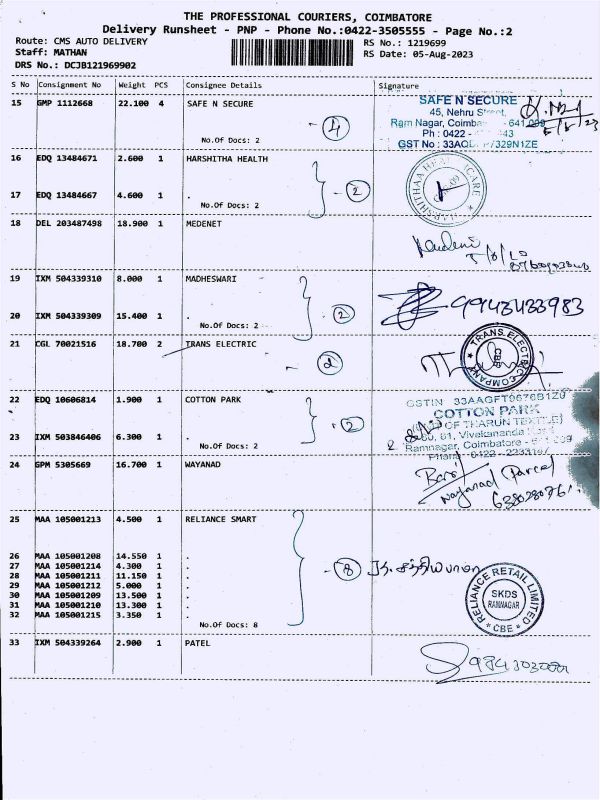 THE PROFESSIONAL COURIERS, COIMBATORE
Delivery Runsheet - PNP - Phone No.:0422-3505555 - Page No.:2
Route: CMS AUTO DELIVERY
RS No.: 1219699
Staff: MATHAN
RS Date: 05-Aug-2023
DRS No.: DCJB121969902
S No Consignment No Weight PCS Consignee Details Signature
15 GMP 1112668 22.100 4 SAFE N SECURE
SAFE N SECURE
45, Nehru Street,
Ram Nagar, 641 009
Ph : 0422 -
GST No :
4
No.Of Docs: 2
16 EDQ 13484671 2.600 1 HARSHITHA HEALTH
2
17 EDQ 13484667 4.600 1 .
No.Of Docs: 2
18 DEL 203487498 18.900 1 MEDENET
19 IXM 504339310 8.000 1 MADHESWARI
20 IXM 504339309 15.400 1 .
2
No.Of Docs: 2
9943433983
21 CGL 70021516 18.700 2 TRANS ELECTRIC
TRANS ELECTRIC COMPANY
CBE
2
22 EDQ 10606814 1.900 1 COTTON PARK
COTTON PARK
OF THARUN TEXTILE)
Vivekananda Road
Ramnagar, Coimbatore
2
23 IXM 503846406 6.300 1 .
No.Of Docs: 2
24 GPM 5305669 16.700 1 WAYANAD
Wayanad Parcel
25 MAA 105001213 4.500 1 RELIANCE SMART
26 MAA 105001208 14.550 1 .
27 MAA 105001214 4.300 1 .
28 MAA 105001211 11.150 1 .
29 MAA 105001212 5.000 1 .
30 MAA 105001209 13.500 1 .
31 MAA 105001210 13.300 1 .
32 MAA 105001215 3.350 1 .
No.Of Docs: 8
8
RELIANCE RETAIL LIMITED
SKDS
RAMNAGAR
* CBE *
33 IXM 504339264 2.900 1 PATEL